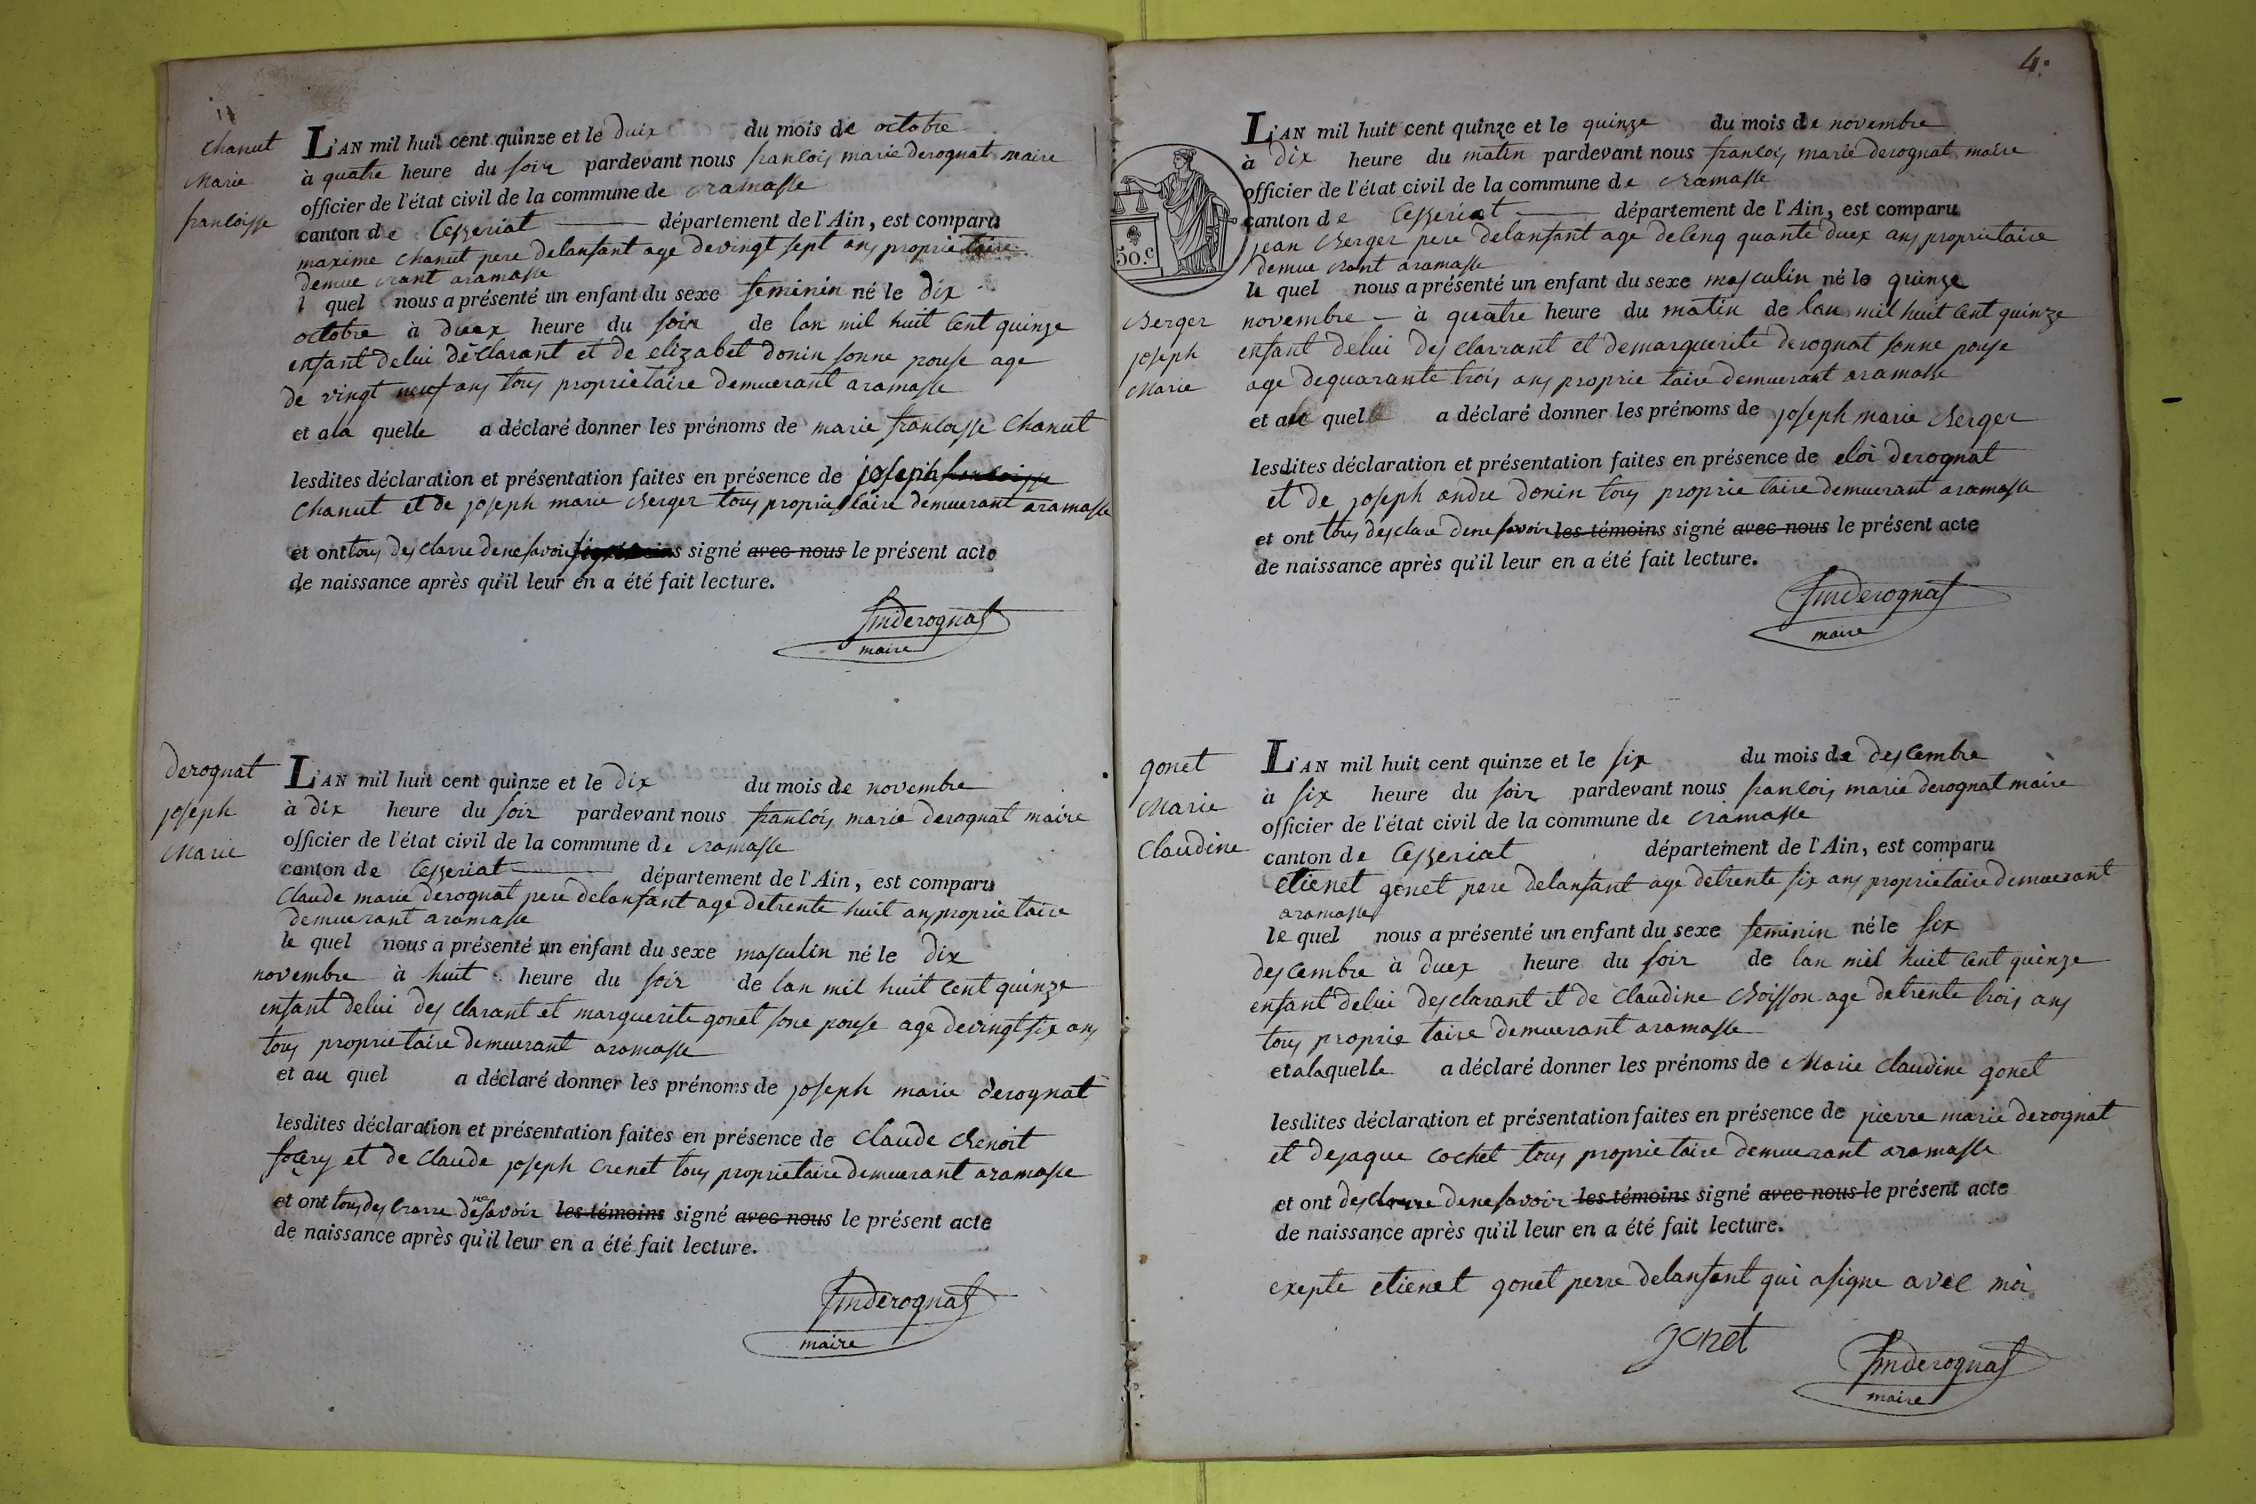 chanut
Marie
francoisse
L'AN mil huit cent quinze et le duix du mois de octobre
à quatre heure du soir pardevant nous francois marie derognat maire
officier de l'état civil de la commune de ramasse
canton de Cesseriat département de l'Ain, est comparu
maxime chanut pere delanfant age de vingt sept ans proprietaire
demue rant aramasse
l quel nous a présenté un enfant du sexe feminin né le dix
octobre à duex heure du soir de lan mil huit cent quinze
enfant delui déclarant et de elizabet donin sonne pouse age
de vingt neuf ans tous proprietaire demuerant aramasse
et a la quelle a déclaré donner les prénoms de marie francoisse chanut
lesdites déclaration et présentation faites en présence de joseph francoisse
chanut et de joseph marie Berger tous proprietaire demuerant aramasse
et ont tous desclarre denesavoir signé avec nous le présent acte
de naissance après qu'il leur en a été fait lecture.
fmderognat
maire
derognat
joseph
Marie
L'AN mil huit cent quinze et le dix du mois de novembre
à dix heure du soir pardevant nous francois marie derognat maire
officier de l'état civil de la commune de ramasse
canton de Cesseriat département de l'Ain, est comparu
Claude marie derognat pere delanfant age detrente huit an proprietaire
demuerant aramasse
le quel nous a présenté un enfant du sexe masculin né le dix
novembre à huit heure du soir de lan mil huit cent quinze
enfant delui desclarant et marguerite gonet sone pouse age devingt six ans
tous proprietaire demuerant aramasse
et au quel a déclaré donner les prénoms de joseph marie derognat
lesdites déclaration et présentation faites en présence de Claude Benoit
et de Claude joseph crenet tous proprietaire demuerant aramasse
et ont tous desclarre de ne savoir les témoins signé avec nous le présent acte
de naissance après qu'il leur en a été fait lecture.
fmderognat
maire
4.
50.c
Berger
joseph
Marie
L'AN mil huit cent quinze et le quinze du mois de novembre
à dix heure du matin pardevant nous francois marie derognat maire
officier de l'état civil de la commune de ramasse
canton de Cesseriat département de l'Ain, est comparu
jean Berger pere delanfant age de cenq quante duex ans proprietaire
demue rant aramasse
le quel nous a présenté un enfant du sexe masculin né le quinze
novembre à quatre heure du matin de lan mil huit cent quinze
enfant delui desclarrant et demarguerite derognat sonne pouse
age dequarante trois ans proprietaire demuerant aramasse
et au quel a déclaré donner les prénoms de joseph marie Berger
lesdites déclaration et présentation faites en présence de eloi derognat
et de joseph andre donin tous proprietaire demuerant aramasse
et ont tous desclare denesavoir les témoins signé avec nous le présent acte
de naissance après qu'il leur en a été fait lecture.
fmderognat
maire
gonet
Marie
Claudine
L'AN mil huit cent quinze et le six du mois de descembre
à six heure du soir pardevant nous francois marie derognat maire
officier de l'état civil de la commune de ramasse
canton de Cesseriat département de l'Ain, est comparu
etienet gonet pere delanfant age detrente six ans proprietaire demuerant
aramasse
le quel nous a présenté un enfant du sexe feminin né le six
descembre à duex heure du soir de lan mil huit cent quinze
enfant delui desclarant et de Claudine Boisson age detrente trois ans
tous proprietaire demuerant aramasse
et alaquelle a déclaré donner les prénoms de Marie Claudine gonet
lesdites déclaration et présentation faites en présence de pierre marie derognat
et dejaque cochet tous proprietaire demuerant aramasse
et ont desclarre denesavoir les témoins signé avec nous le présent acte
de naissance après qu'il leur en a été fait lecture.
exepte etienet gonet perre delanfant qui asigne avec moi
gonet
fmderognat
maire